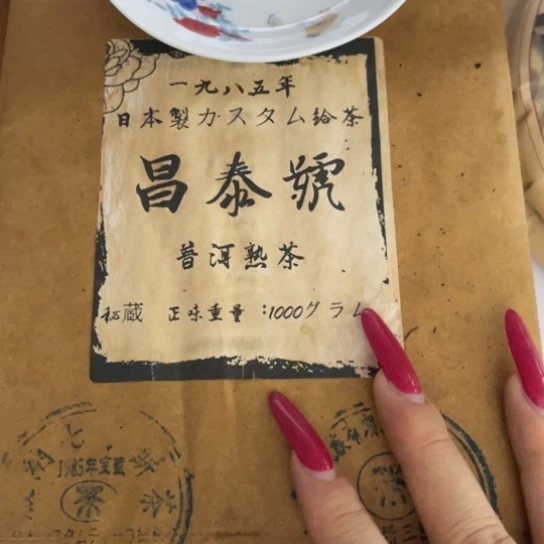 一九八五年
日本製カスタム給茶
昌泰號
普洱熟茶
秘蔵 正味重量:1000グラム
1985年
茶